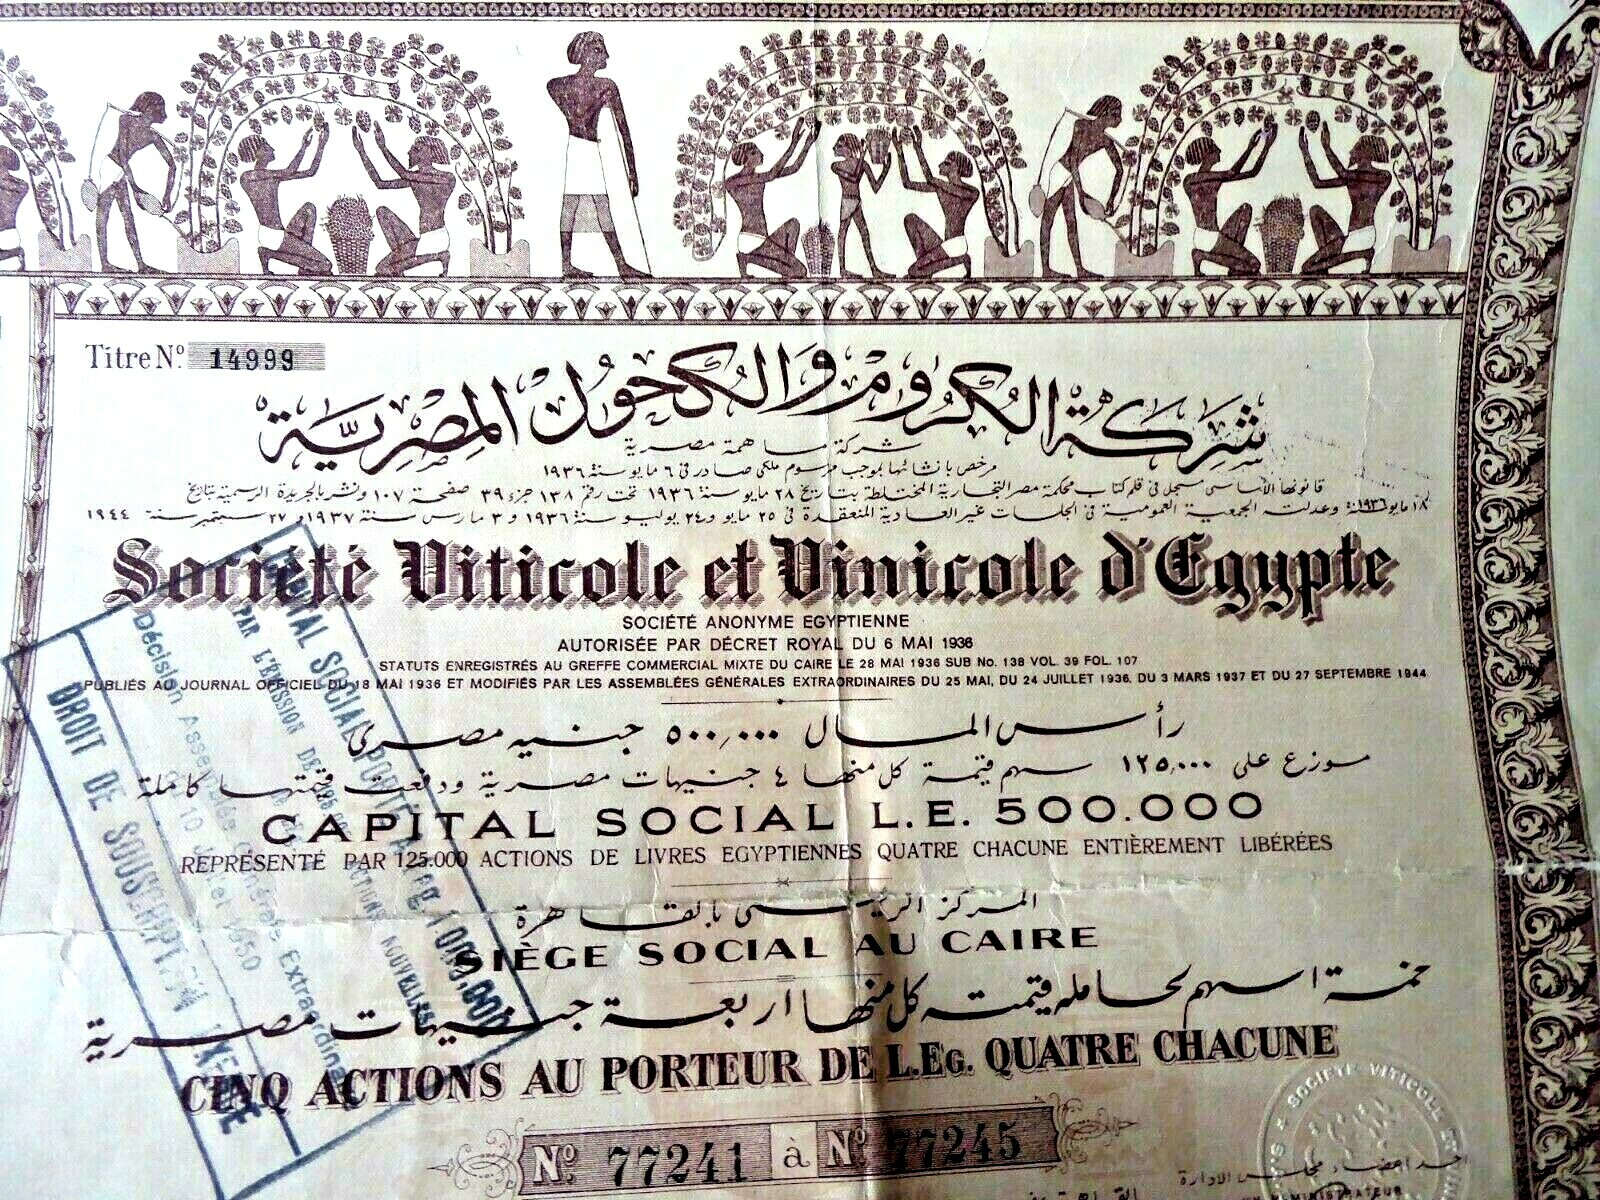 Titre Nº 14999
شركة الكروم والكحول المصرية
شركة مساهمة مصرية
مرخص بإنشائها بموجب مرسوم ملكي صادر في ٦ مايو سنة ١٩٣٦
قانونها الأساسي مسجل في قلم كتاب محكمة مصر التجارية المختلطة بتاريخ ٢٨ مايو سنة ١٩٣٦ تحت رقم ١٣٨ جزء ٣٩ صفحة ١٠٧ ونشر بالجريدة الرسمية بتاريخ
١٨ مايو ١٩٣٦ وعدلته الجمعية العمومية في الجلسات غير العادية المنعقدة في ٢٥ مايو و٢٤ يوليو سنة ١٩٣٦ و٣ مارس سنة ١٩٣٧ و٢٧ سبتمبر سنة ١٩٤٤
Société Viticole et Vinicole d'Egypte
SOCIÉTÉ ANONYME EGYPTIENNE
AUTORISÉE PAR DÉCRET ROYAL DU 6 MAI 1936
STATUTS ENREGISTRÉS AU GREFFE COMMERCIAL MIXTE DU CAIRE LE 28 MAI 1936 SUB No. 138 VOL. 39 FOL. 107
PUBLIÉS AU JOURNAL OFFICIEL DU 18 MAI 1936 ET MODIFIÉS PAR LES ASSEMBLÉES GÉNÉRALES EXTRAORDINAIRES DU 25 MAI, DU 24 JUILLET 1936, DU 3 MARS 1937 ET DU 27 SEPTEMBRE 1944
رأس المال ٥٠٠,٠٠٠ جنيه مصرى
موزع على ١٢٥,٠٠٠ سهم قيمة كل منها ٤ جنيهات مصرية ودفعت قيمتها كاملة
CAPITAL SOCIAL L.E. 500.000
REPRÉSENTÉ PAR 125.000 ACTIONS DE LIVRES EGYPTIENNES QUATRE CHACUNE ENTIÈREMENT LIBÉRÉES
المركز الرئيسى بالقاهرة
SIÈGE SOCIAL AU CAIRE
خمسة اسهم لحامله قيمة كل منها اربعة جنيهات مصرية
CINQ ACTIONS AU PORTEUR DE L.EG. QUATRE CHACUNE
Nº 77241 à Nº 77245
احد اعضاء مجلس الادارة
SOCIÉTÉ VITICOLE ET
CAPITAL SOCIAL PORTÉ A Leg 1.000.000
PAR L'ÉMISSION DE
ACTIONS NOUVELLES
Décision Assemblée Générale Extraordinaire
1950
DROIT DE SOUSCRIPTION